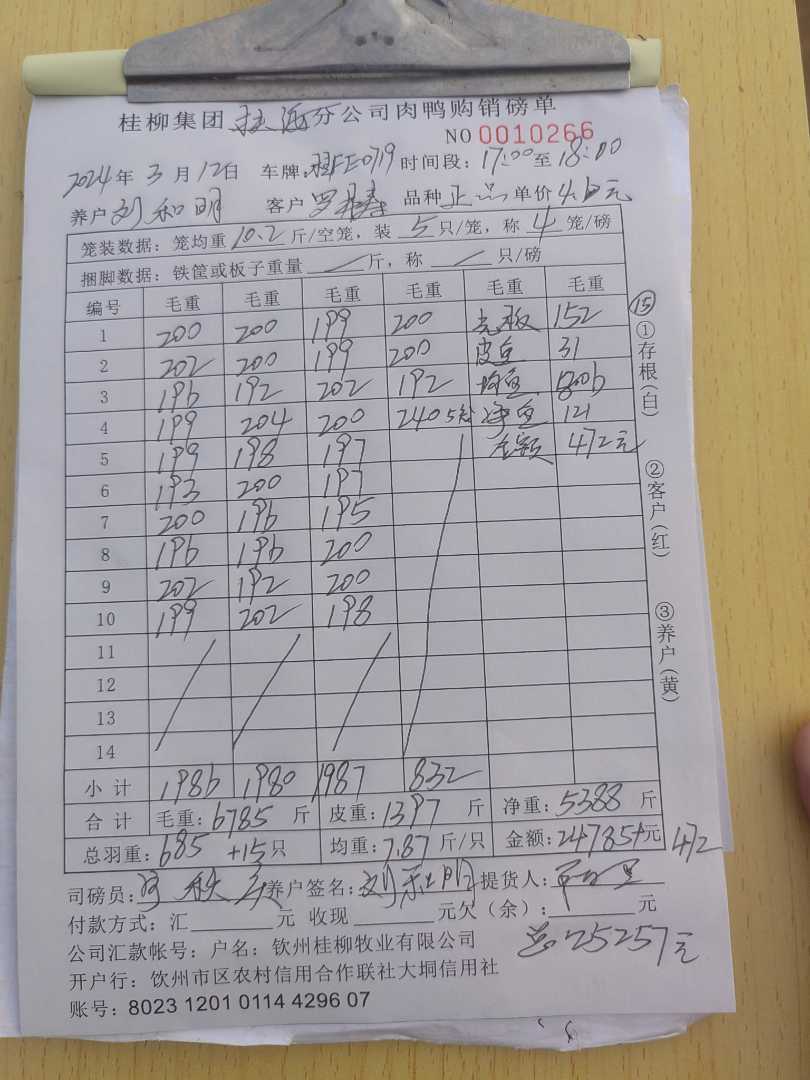 桂柳集团 分公司肉鸭购销磅单
NO 0010266
2024年3月12日 车牌: FE0719 时间段:17:00至18:00
养户 刘和明 客户 罗 品种 正品 单价 4.6元
笼装数据:笼均重10.2斤/空笼,装 5 只/笼,称 4 笼/磅
捆脚数据:铁筐或板子重量 / 斤,称 / 只/磅
编号 毛重 毛重 毛重 毛重 毛重 毛重
1 200 200 199 200 毛板 152
2 202 200 199 200 皮重 31
3 196 192 202 192 均重
4 199 204 200 240 5笼 净重 121
5 199 198 197 总额 472元
6 193 200 197
7 200 196 195
8 196 196 200
9 202 192 200
10 199 202 198
11
12
13
14
小计 1986 1980 1987 832
合计 毛重:6785 斤 皮重:1397 斤 净重:5388 斤
总羽重:685 +15只 均重:7.87斤/只 金额:24785+元 472
司磅员: 养户签名:刘和明 提货人:
付款方式:汇 元 收现 元欠(余): 元
公司汇款帐号:户名:钦州桂柳牧业有限公司
总25257元
开户行:钦州市区农村信用合作联社大垌信用社
账号:8023 1201 0114 4296 07
⑮
①存根(白)
②客户(红)
③养户(黄)